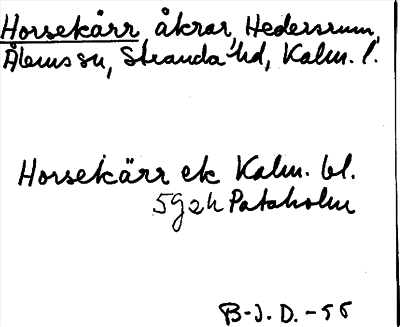 Horsekärr, åkrar, Hedersrum,
Ålems sn, Stranda hd, Kalm. l.
Horsekärr ek Kalm. bl.
5g2h Pataholm
B-J. D. -55